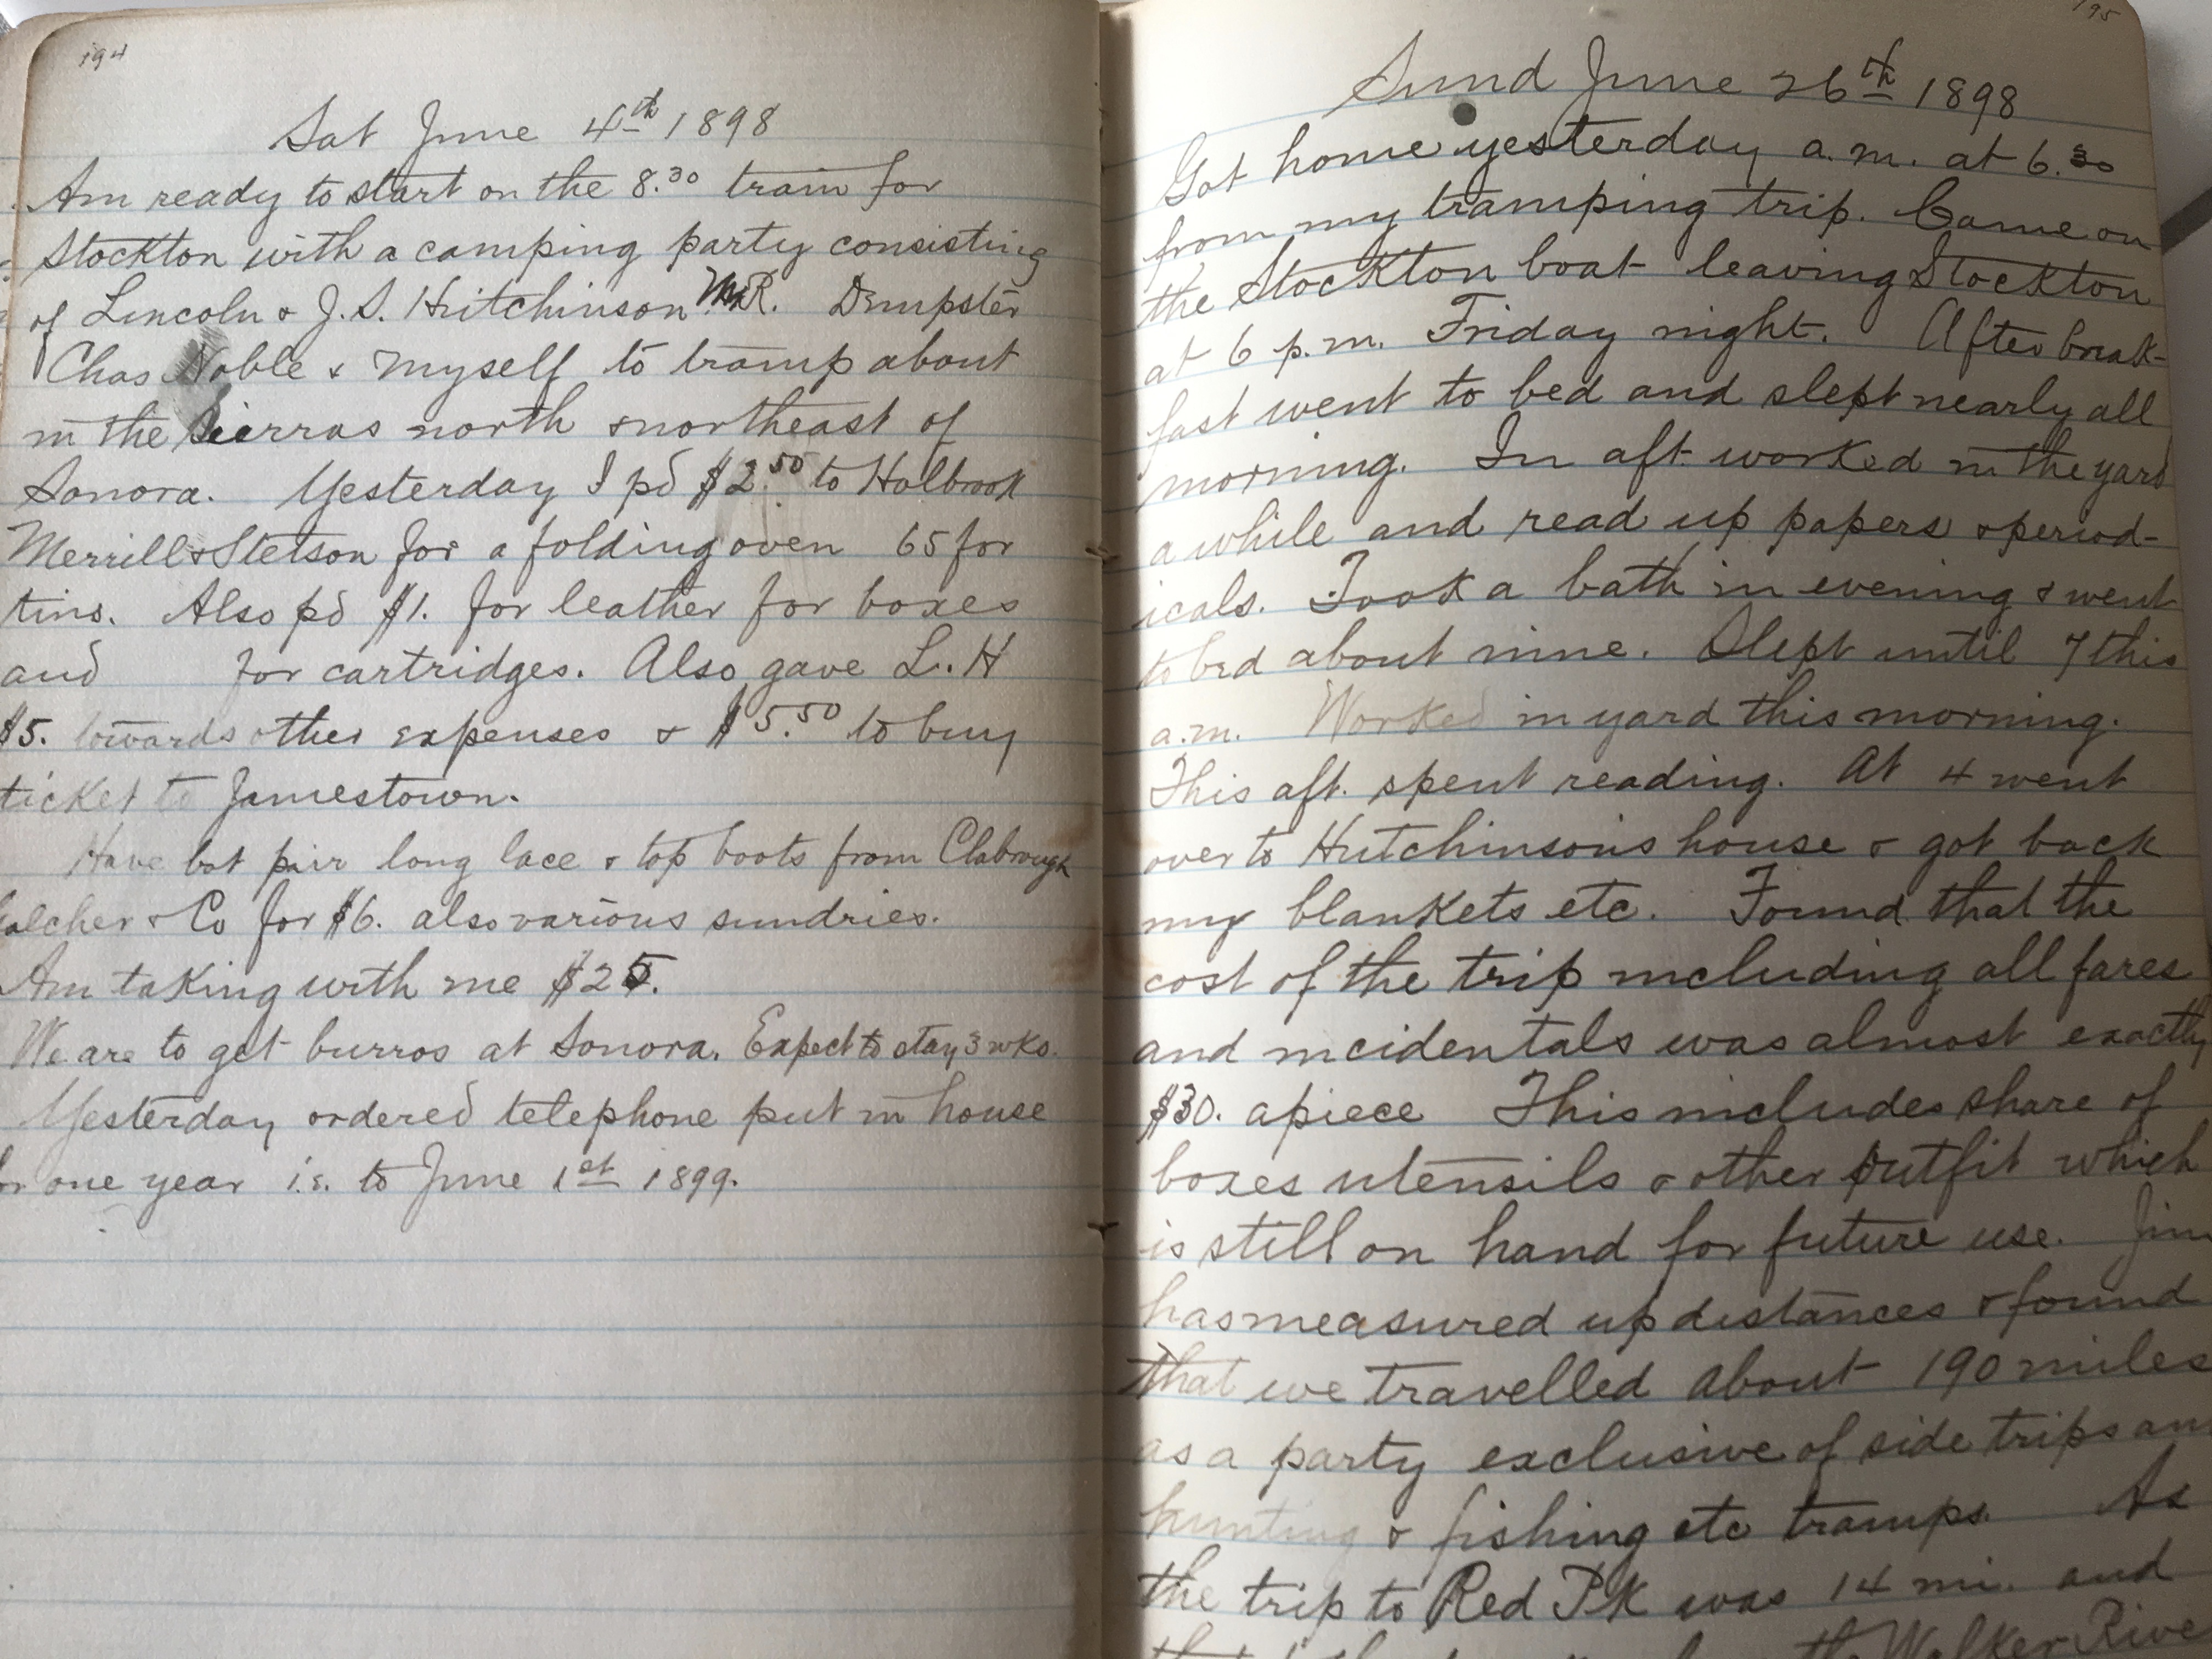 194
Sat June 4th 1898
Am ready to start on the 8.30 train for
Stockton with a camping party consisting
of Lincoln & J. S. Hutchinson M.R. Dempster
Chas Noble & myself to tramp about
in the Sierras north & northeast of
Sonora. Yesterday I pd $2.50 to Holbrook
Merrill & Stetson for a folding oven 65 for
tins. Also pd $1. for leather for boxes
and for cartridges. Also gave L. H
$5. towards other expenses & $5.50 to buy
ticket to Jamestown.
Have bot pair long lace & top boots from Clabrough
Golcher & Co for $6. also various sundries.
Am taking with me $25.
We are to get burros at Sonora. Expect to stay 3 wks.
Yesterday ordered telephone put in house
for one year i.e. to June 1st 1899.
195
Sund June 26th 1898
Got home yesterday a.m. at 6.30
from my tramping trip. Came on
the Stockton boat leaving Stockton
at 6 p.m. Friday night. After break-
fast went to bed and slept nearly all
morning. In aft. worked in the yard
a while and read up papers & period-
icals. Took a bath in evening & went
to bed about nine. Slept until 7 this
a.m. Worked in yard this morning.
This aft. spent reading. At 4 went
over to Hutchinson's house & got back
my blankets etc. Found that the
cost of the trip including all fares
and incidentals was almost exactly
$30. apiece This includes share of
boxes utensils & other outfit which
is still on hand for future use. Jim
has measured up distances & found
that we travelled about 190 miles
as a party exclusive of side trips and
hunting & fishing etc tramps. As
the trip to Red Pk was 14 mi. and
the Walker River